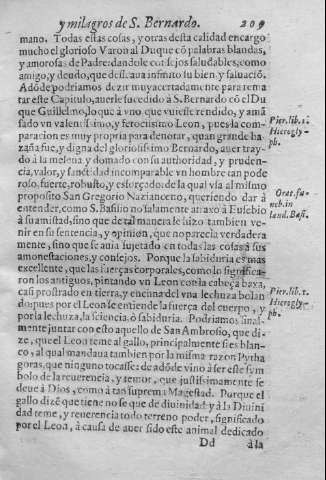 y milagros de S. Bernardo. 209
mano. Todas estas cosas, y otras desta calidad encargo
mucho el glorioso Varon al Duque cõ palabras blandas,
y amorosas de Padre: dandole consejos saludables, como
amigo, y deudo, que desseaua infinito su bien, y saluaciõ.
Adõde podriamos dezir muy acertadamente para rema
tar este Capitulo, auerle sucedido à S. Bernardo cõ el Du
que Guillelmo, lo que à vno que viuesse rendido, y ama
sado vn valentissimo, y ferocissimo Leon, pues la com-
paracion es muy propria para denotar, quan grande ha-
zaña fue, y digna del gloriosissimo Bernardo, auer tray-
do à la melena y domado con su authoridad, y pruden-
cia, valor, y sanctidad incomparable vn hombre tan pode
roso, fuerte, robusto, y esforçado: de la qual vsa al mismo
proposito San Gregorio Nazianceno, queriendo dar à
entender, como S. Basilio no solamente atraxo à Eusebio
à su amistad, sino que de tal manera le hizo tambien ve-
nir en su sentencia, y opinion, que no parecia verdadera
mente, sino que se auia sujetado en todas las cosas à sus
amonestaciones, y consejos. Porque la sabiduria es mas
excellente, que las fuerças corporales, como lo significa-
ron los antiguos, pintando vn Leon con la cabeça baxa,
casi prostrado en tierra, y encima del vna lechuza bolan
do: pues por el Leon se entiende la fuerça del cuerpo, y
por la lechuza, la sciencia, ò sabiduria. Podriamos final-
mente juntar con esto aquello de San Ambrosio, que di-
ze, que el Leon teme al gallo, principalmente si es blan-
co, al qual mandaua tambien por la misma razon Pytha
goras, que ninguno tocasse: de adõde vino à ser este sym
bolo de la reuerencia, y temor, que justissimamente se
deue à Dios, como à tan suprema Magestad. Porque el
gallo dizẽ que tiene no se que de diuinidad y à la Diuini
dad teme, y reuerencia todo terreno poder, significado
por el Leon, à causa de auer sido este animal dedicado
Dd à la
Pier. lib. 1.
Hierogly-
ph.
Orat. fu-
neb. in
laud. Basi.
Pier. lib. 1.
Hierogly-
ph.